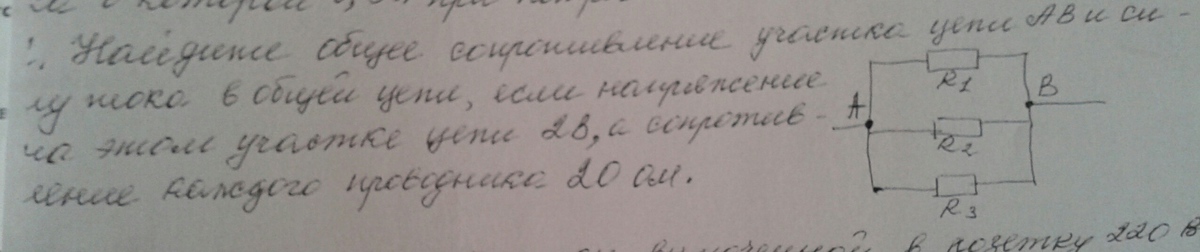 Найдите общее сопротивление участка цепи АВ и си-
лу тока в общей цепи, если напряжение
на этом участке цепи 2В, а сопротив-
ление каждого проводника 20 ом.
R1
B
A
R2
R3
в розетку 220 В